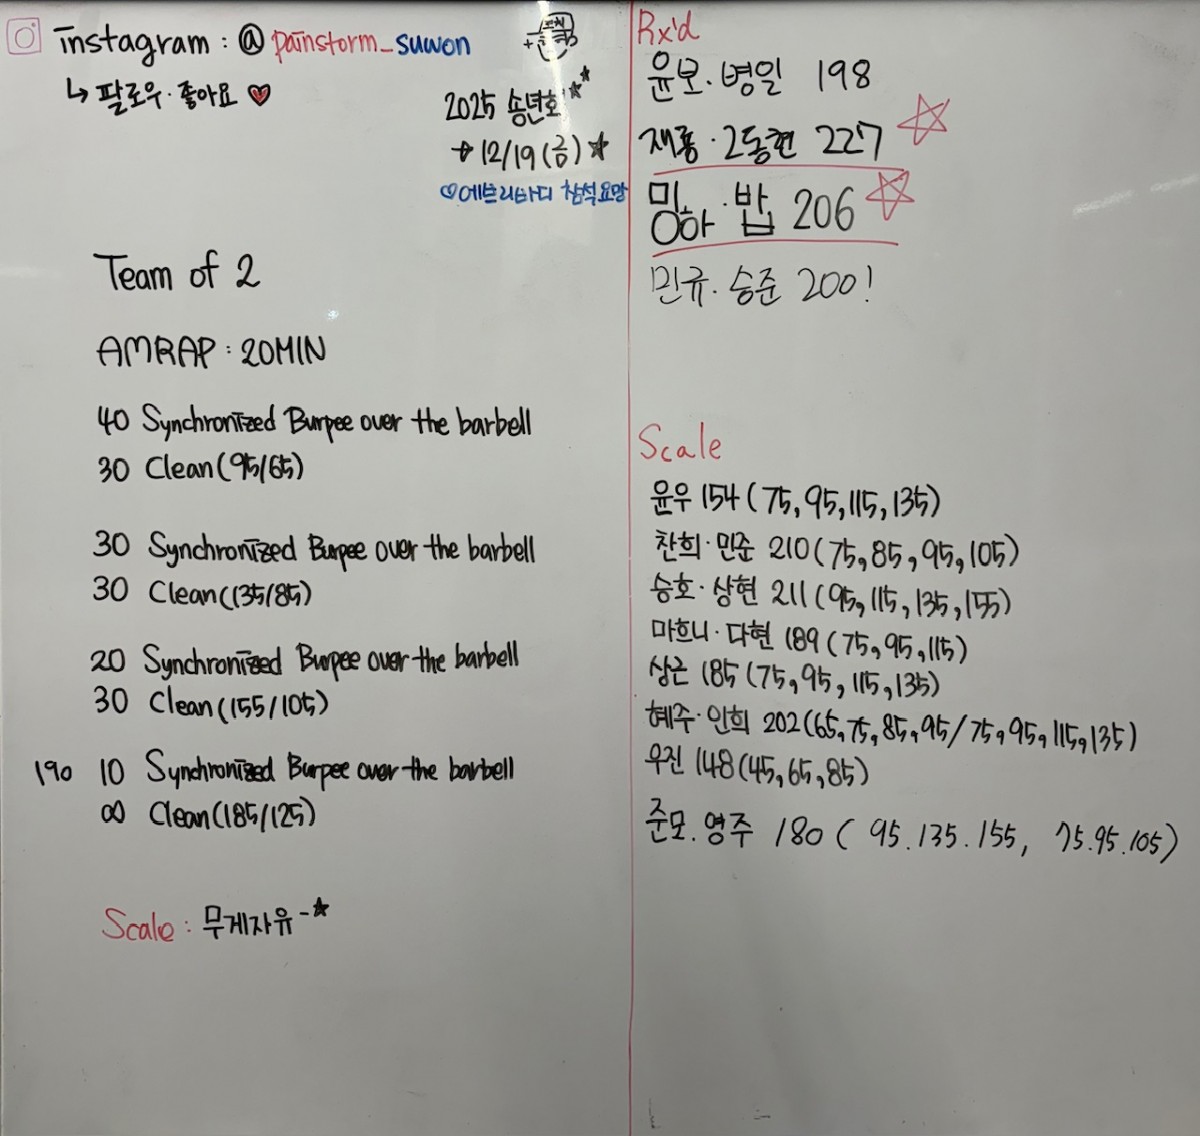 instagram : @ painstorm_suwon
↳ 팔로우·좋아요 ♥
2025 송년회
→ 12/19 (금) ★
♡에브리바디 참석요망
Team of 2
AMRAP : 20MIN
40 Synchronized Burpee over the barbell
30 Clean (95/65)
30 Synchronized Burpee over the barbell
30 Clean (135/85)
20 Synchronized Burpee over the barbell
30 Clean (155/105)
190 10 Synchronized Burpee over the barbell
∞ Clean (185/125)
Scale : 무게자유-★
Rx'd
윤보·병일 198
재룡·2동현 227 ☆
밍하·밥 206 ☆
민규·승준 200!
Scale
윤우 154 (75, 95, 115, 135)
찬희·민준 210 (75, 85, 95, 105)
승호·상현 211 (95, 115, 135, 155)
마흐니·다현 189 (75, 95, 115)
상근 185 (75, 95, 115, 135)
혜주·인희 202 (65, 75, 85, 95 / 75, 95, 115, 135)
우진 148 (45, 65, 85)
준모. 영주 180 ( 95. 135. 155, 75. 95. 105)